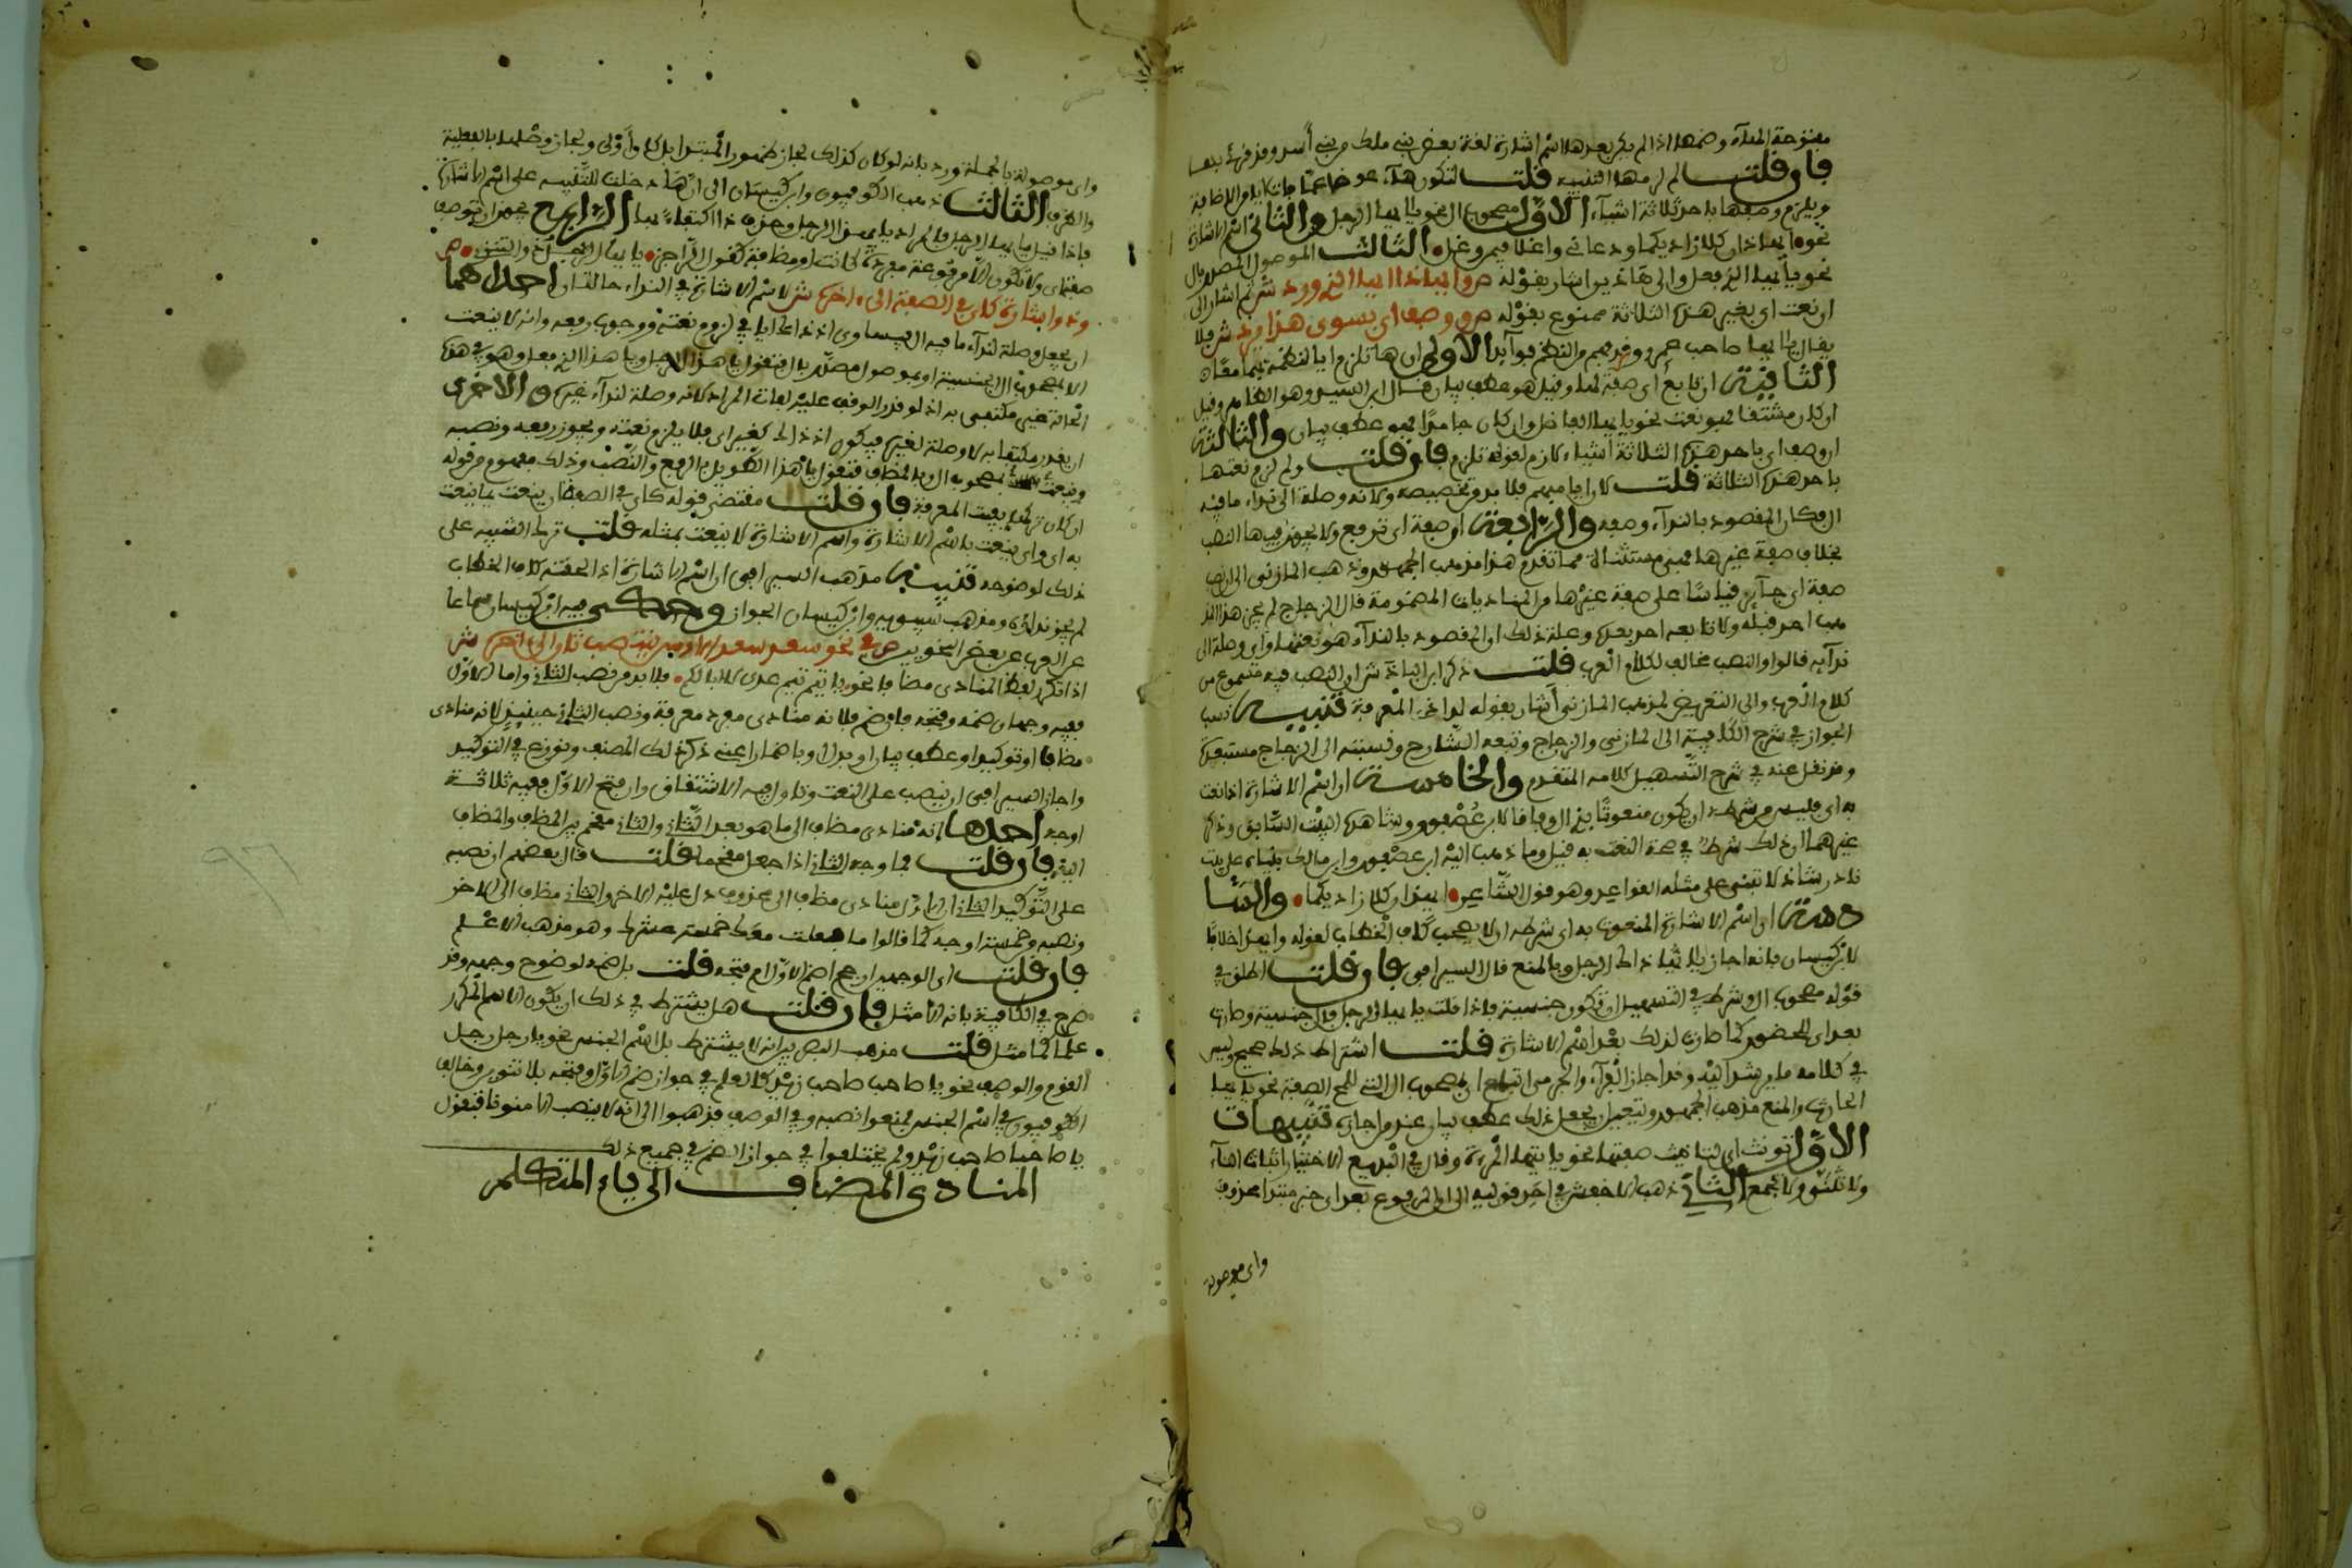 مفتوحة الهاء وضمها اذا لم يكن بعدها اسم اشارة لغة بعض بني ملك من بني أسد وقد قرئ بها
فان قلت لم لزمها التنبيه قلت لتكون هاء عوضا عما فات ايا من الاضافة
ويلزم وصفها باحد ثلاثة اشياء الاول مصحوب ال نحو يا ايها الرجل والثاني اسم الاشارة
نحو ايهاذان كلا زاديكما ودعاني واغلا فيمن وغل الثالث الموصول المصدر بال
نحو يا ايها الذي فعل والى هاذين اشار بقوله ص وايهاذا ايها الذي ورد ش ثم اشار الى
ان نعت اي بغير هذه الثلاثة ممنوع بقوله ص ووصف اي بسوى هذا يرد ش فلا
يقال يا ايها صاحب عمرو وفهم من النظم فوائد الاولى ان ها تلزم ايا لنظمه ايها معًا
الثانية ان تابع أي صفة لها وقيل هو عطف بيان قال ابن السيد وهو الظاهر وقيل
ان كان مشتقا فهو نعت نحو يا ايها الفاضل وان كان جامدا فهو عطف بيان والثالثة
ان وصف اي باحد هذه الثلاثة اشياء لازم لقوله تلزم فان قلت ولم لزم نعتها
باحد هذه الثلاثة قلت لان ايا مبهم فلا بد من تخصيصه ولانه وصلة الى نداء ما فيه
ال فكان المقصود بالنداء وصفه والرابعة ان صفة اي ترفع ولا يجوز فيها النصب
بخلاف صفة غيرها فهي مستثناة مما تقدم هذا مذهب الجمهور وذهب المازني الى ان نصب
صفة اي جائز قياسًا على صفة غيرها من المناديات المضمومة قال الزجاج لم يجز هذا المذ
هب احد قبله ولا تابعه احد بعده وعلة ذلك ان المقصود بالنداء هو نعتها واي وصلة الى
ندائه قالوا والنصب مخالف لكلام العرب قلت ذكر ابن الباذش ان النصب فيه مسموع من
كلام العرب والى التعريض لمذهب المازني أشار بقوله لدى ذي المعرفة تنبيه نسب
الجواز في شرح الكافية الى المازني والزجاج وتبعه الشارح ونسبته الى الزجاج مستبعدة
وقد نقل عنه في شرح التسهيل كلامه المتقدم والخامسة ان اسم الاشارة اذا نعت
به اي فليس من شرطه ان يكون منعوتًا بذي ال وفاقا لابن عصفور وشاهده البيت السابق وذكر
غيرهما ان ذلك شرط في صحة النعت به قيل وما ذهب اليه ابن عصفور وابن مالك بنياه على بيت
نادر شاذ لا تبنى على مثله القواعد وهو قول الشاعر ايهذان كلا زاديكما والسا
دسة ان اسم الاشارة المنعوت به اي شرطه ان لا يصحب كاف الخطاب لقوله وايهذا خلافا
لابن كيسان فانه اجاز يا ايها ذاك الرجل وبالمنع قال السيرافي فان قلت اطلق في
قوله مصحوب ال وشرط في التسهيل ان تكون جنسية فاذا قلت يا ايها الرجل فال جنسية وصارت
بعد اي للحضور كما صارت لذلك بعد اسم الاشارة قلت اشتراط ذلك صحيح وليس
في كلامه ما يرشد اليه وقد اجاز الفراء والجرمي اتباع اي مصحوب ال التي للمح الصفة نحو يا ايها
الحارث والمنع مذهب الجمهور ويتعين ان يجعل ذلك عطف بيان عند من اجازه تنبيهات
الاول تونث اي لتانيث صفتها نحو يا ايتها المرءة وقال في البديع الاختيار اثبات التاء
ولا تثنى ولا تجمع الثاني ذهب الاخفش في احد قوليه الى ان المرفوع بعد اي خبر مبتدا محذوف
واي موصولة
واي موصولة بالجملة ورد بانه لو كان كذلك لجاز ظهور المبتدا بل كان أولى ولجاز وصلها بالفعلية
والظرف الثالث ذهب الكوفيون وابن كيسان الى ان ها دخلت للتنبيه على اسم الاشارة
فاذا قيل يا ايها الرجل فالمراد يا ايهذا الرجل وحذف ذا اكتفاء بها الرابع يجوز ان توصف
صفة اي ولا تكون الا مرفوعة مفردة كانت او مضافة كقول الراجز يا ايها الجاهل ذو التنزي ص
وذو اشارة كاي في الصفة الى اخره ش لاسم الاشارة في النداء حالتان احداهما
ان يجعل وصلة لنداء ما فيه ال فيساوي اذ ذاك ايا في لزوم نعته ووجوب رفعه وانه لا ينعت
الا بمصحوب ال الجنسية او بموصول مصدر بال فتقول يا هذا الرجل ويا هذا الذي فعل وهو في هذه
الحالة غير مكتفى به اذ لو قدر الوقف عليه لفات المراد لانه وصلة لنداء غيره والاخرى
ان يقدر مكتفا به لا وصلة لغيره فيكون اذ ذاك كغير اي فلا يلزم نعته ويجوز رفعه ونصبه
وينعت بمصحوب ال وبالمضاف فتقول يا هذا الطويل بالرفع والنصب وذلك مفهوم من قوله
ان كان تركها يفيت المعرفة فان قلت مقتضى قوله كاي في الصفة ان ينعت بما ينعت
به اي واي ينعت باسم الاشارة واسم الاشارة لا ينعت بمثله قلت ترك التنبيه على
ذلك لوضوحه تنبيه مذهب السيرافي ان اسم الاشارة اذا لحقته كاف الخطاب
لم يجز نداؤه ومذهب سيبويه وابن كيسان الجواز وحكى فيه ابن كيسان سماعا
عن العرب عن بعض النحويين ص في نحو سعد سعد الاوس ينتصب ثان الى اخره ش
اذا تكرر لفظ المنادى مضافا نحو يا تيم تيم عدي لا ابا لكم فلا بد من نصب الثاني واما الاول
ففيه وجهان ضمه وفتحه فان ضم فلانه منادى مفرد معرفة ونصب الثاني حينئذ لانه منادى
مضافا او توكيد او عطف بيان او بدل او باضمار اعني ذكر ذلك المصنف ونوزع في التوكيد
واجاز السيرافي ان ينصب على النعت وتاول فيه الاشتقاق وان فتح الاول ففيه ثلاثة
اوجه احدها انه منادى مضاف الى ما هو بعد الثاني والثاني مقحم بين المضاف والمضاف
اليه فان قلت فما وجه الثاني اذا جعل مقحما قلت قال بعضهم ان نصبه
على التوكيد الثاني ان الاول منادى مضاف الى محذوف دل عليه الاخر والثاني مضاف الى الاخر
ونصبه من خمسة اوجه كما قالوا ما فعلت خمسة عشر وهو مذهب الاعلم
فان قلت اي الوجهين ارجح اضم الاول ام فتحه قلت بل ضمه لوضوح وجهه وقد
صرح في الكافية بانه الامثل فان قلت هل يشترط في ذلك ان يكون الاسم المكرر
علما كما مثل قلت مذهب البصريين انه لا يشترط بل اسم الجنس نحو يا رجل رجل
القوم والوصف نحو يا صاحب صاحب زيد كالعلم في جواز ضم الاول وفتحه بلا تنوين وخالف
الكوفيون في اسم الجنس فمنعوا نصبه وفي الوصف فذهبوا الى انه لا ينصب الا منونا فتقول
يا صاحبا صاحب زيد ولم يختلفوا في جواز الضم في جميع ذلك
المنادى المضاف الى ياء المتكلم